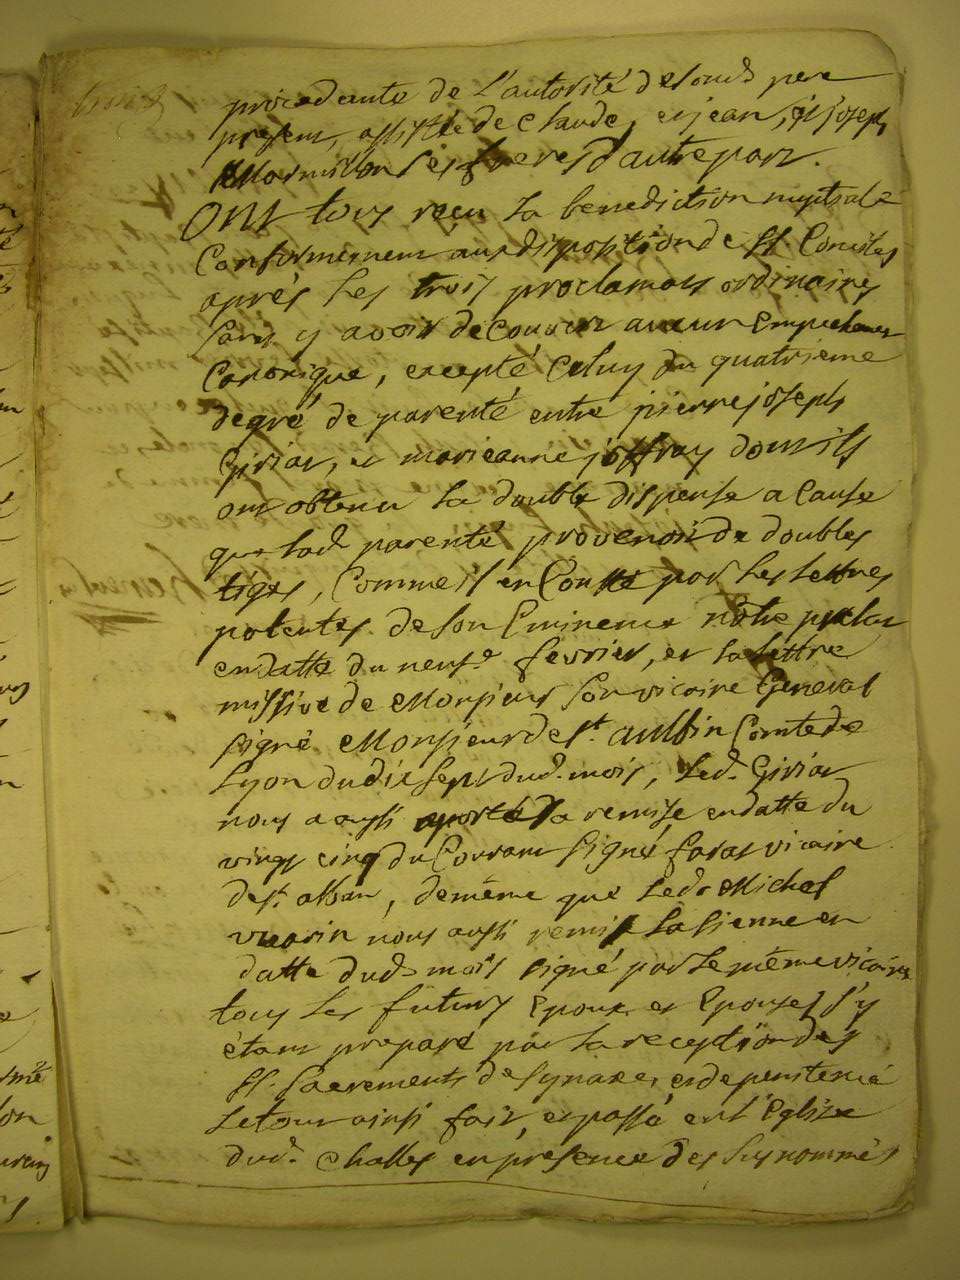 procedante de l'autorité de sond. pere
present, assistée de Claude, et jean, et joseph
Marmillon ses freres d'autre part.
Ont tous reçu la benediction nuptiale
Conformement aux disposition de SS. Conciles
aprés les trois proclamats ordinaires
sans y avoir decouvert aucun Empechement
Canonique, excepté Celuy du quatrieme
degré de parenté entre pierre joseph
Giriat, et marieanne joffray dont ils
ont obtenu la double dispense a Cause
que lad. parenté provenoit de doubles
tiges, Comme il en Conste par les lettres
patentes de son Eminence notre prelat
en datte du neuf.e fevrier, et la lettre
missive de Monsieur son vicaire General
signé Monsieur de st. aulbin Comte de
Lyon du dix sept dud. mois, led. Giriat
nous a aussi aporté sa remise en datte du
vingt cinq du Courant signé favat vicaire
de st. alban, de même que led. Michel
vuarin nous aussi remis la sienne en
datte dud. mois signé par le même vicaire
tous les futurs Epoux et Epouses s'y
étant preparé par la reception des
SS. Sacrements de Synaxe, et de penitence
le tout ainsi fait, et passé en l'Eglise
dud. Challes en presence des susnommés